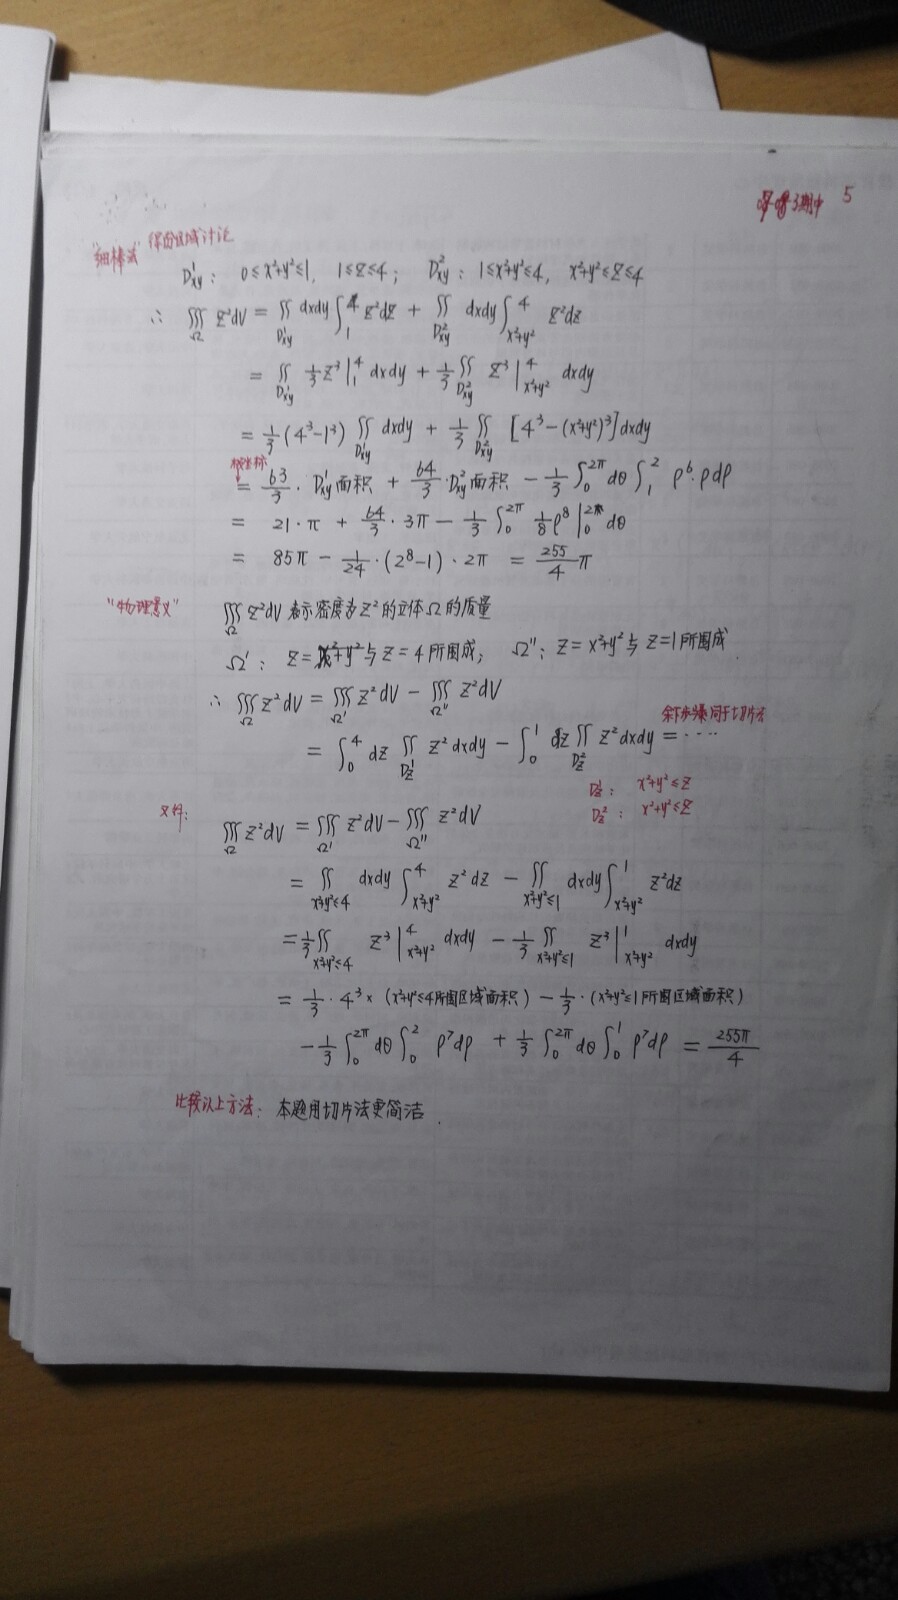 5
"细棒法" 得分区域讨论
D¹xy: 0≤x²+y²≤1, 1≤z≤4; D²xy: 1≤x²+y²≤4, x²+y²≤z≤4
∴ ∭_Ω z²dV = ∬_{D¹xy} dxdy ∫_1^4 z²dz + ∬_{D²xy} dxdy ∫_{x²+y²}^4 z²dz
= ∬_{D¹xy} 1/3 z³ |_1^4 dxdy + 1/3 ∬_{D²xy} z³ |_{x²+y²}^4 dxdy
= 1/3 (4³-1³) ∬_{D¹xy} dxdy + 1/3 ∬_{D²xy} [4³-(x²+y²)³] dxdy
极坐标
= 63/3 · D¹xy面积 + 64/3 · D²xy面积 - 1/3 ∫_0^{2π} dθ ∫_1^2 ρ⁶·ρdρ
= 21·π + 64/3 · 3π - 1/3 ∫_0^{2π} 1/8 ρ⁸ |_0^{2π} dθ
= 85π - 1/24 · (2⁸-1) · 2π = 255/4 π
"物理意义" ∭_Ω z²dV 表示密度为z²的立体Ω的质量
Ω': z=x²+y²与z=4所围成; Ω'': z=x²+y²与z=1所围成
∴ ∭_Ω z²dV = ∭_Ω' z²dV - ∭_Ω'' z²dV
余下步骤同于切片法
= ∫_0^4 dz ∬_{D¹z} z²dxdy - ∫_0^1 dz ∬_{D²z} z²dxdy = ····
D¹z: x²+y²≤z
D²z: x²+y²≤z
又解:
∭_Ω z²dV = ∭_Ω' z²dV - ∭_Ω'' z²dV
= ∬_{x²+y²≤4} dxdy ∫_{x²+y²}^4 z²dz - ∬_{x²+y²≤1} dxdy ∫_{x²+y²}^1 z²dz
= 1/3 ∬_{x²+y²≤4} z³ |_{x²+y²}^4 dxdy - 1/3 ∬_{x²+y²≤1} z³ |_{x²+y²}^1 dxdy
= 1/3 · 4³ × (x²+y²≤4所围区域面积) - 1/3 · (x²+y²≤1所围区域面积)
- 1/3 ∫_0^{2π} dθ ∫_0^2 ρ⁷dρ + 1/3 ∫_0^{2π} dθ ∫_0^1 ρ⁷dρ = 255π/4
比较以上方法: 本题用切片法更简洁.